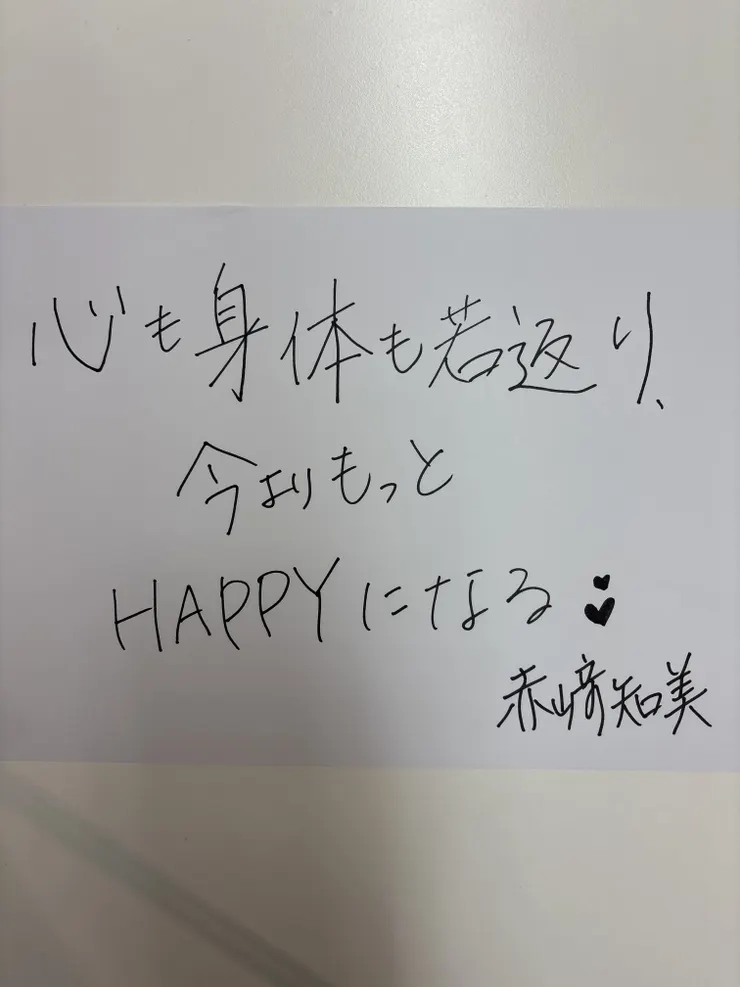 心も身体も若返り、
今よりもっと
HAPPYになる
赤﨑知美